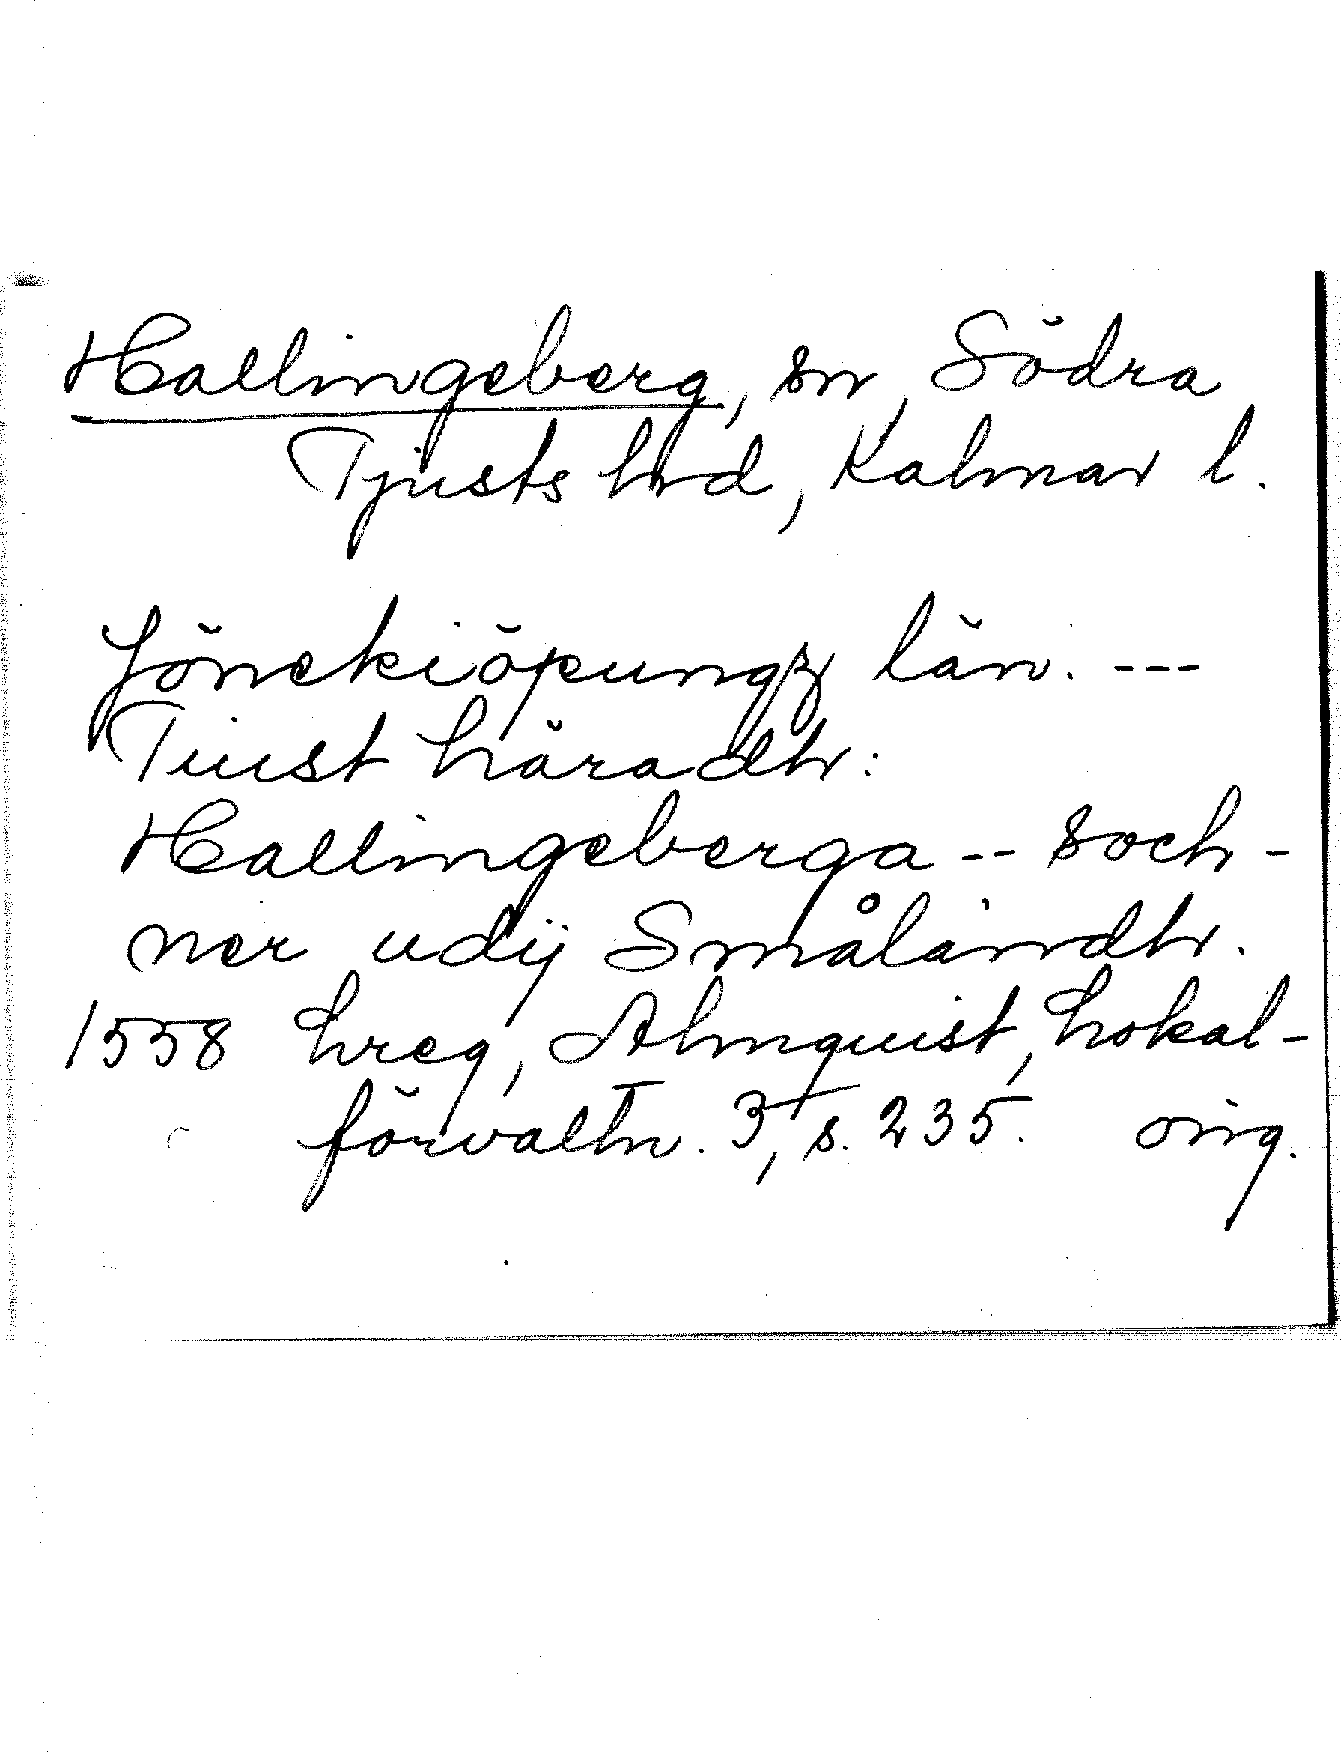 Hallingeberg, sn, Södra
Tjusts hrd, Kalmar l.
Jönckiöpungz län. ---
Tiust häradh:
Hallingeberga -- soch-
ner udij Smålandh.
1558 hreg, Almquist, Lokal-
förvaltn. 3, s. 235. orig.